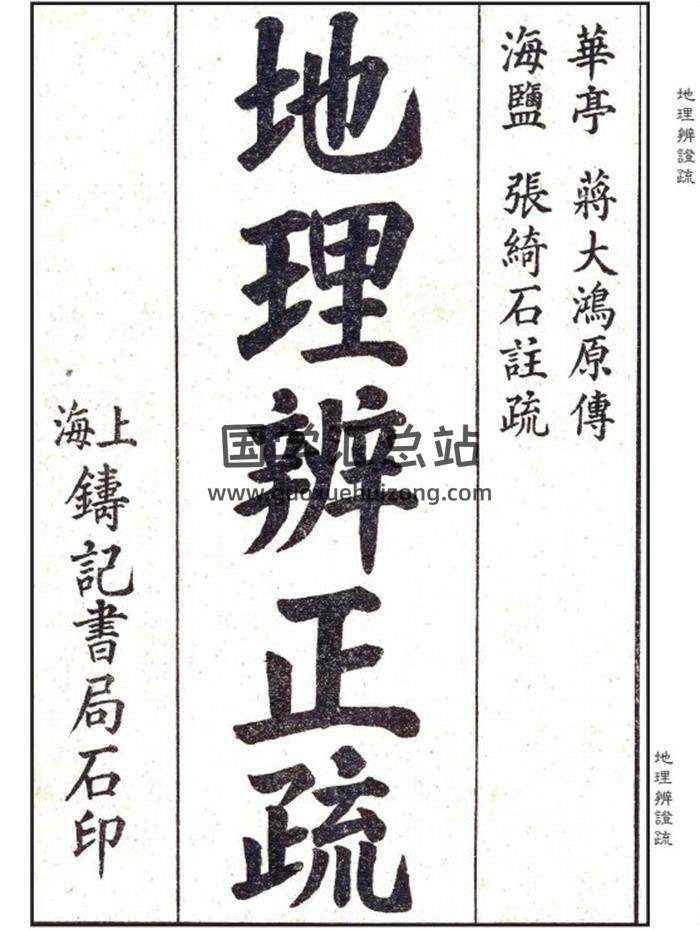 地理辨證疏
華亭 蔣大鴻原傳
海鹽 張綺石註疏
地理辨正疏
上海
鑄記書局石印
国学汇总站
www.guoxuehuizong.com
地理辨證疏